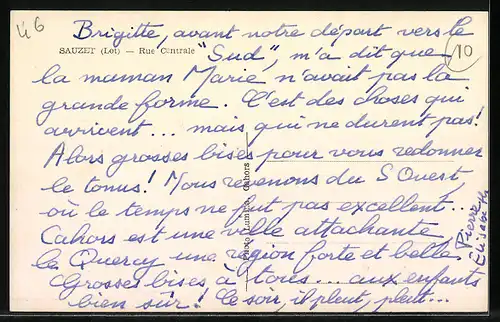 46
Brigitte, avant notre départ vers le
SAUZET (Lot) — Rue Centrale
"Sud", m'a dit que
10
la maman Marie n'avait pas la
grande forme. C'est des choses qui
arrivent... mais qui ne durent pas!
Alors grosses bises pour vous redonner
le tonus! Nous revenons du S Ouest,
où le temps ne fut pas excellent...
Cahors est une ville attachante
le Quercy une région forte et belle.
Grosses bises à tous... aux enfants
bien sûr! Ce soir, il pleut, pleut...
Pierre
Elisabeth
Photo Cahors